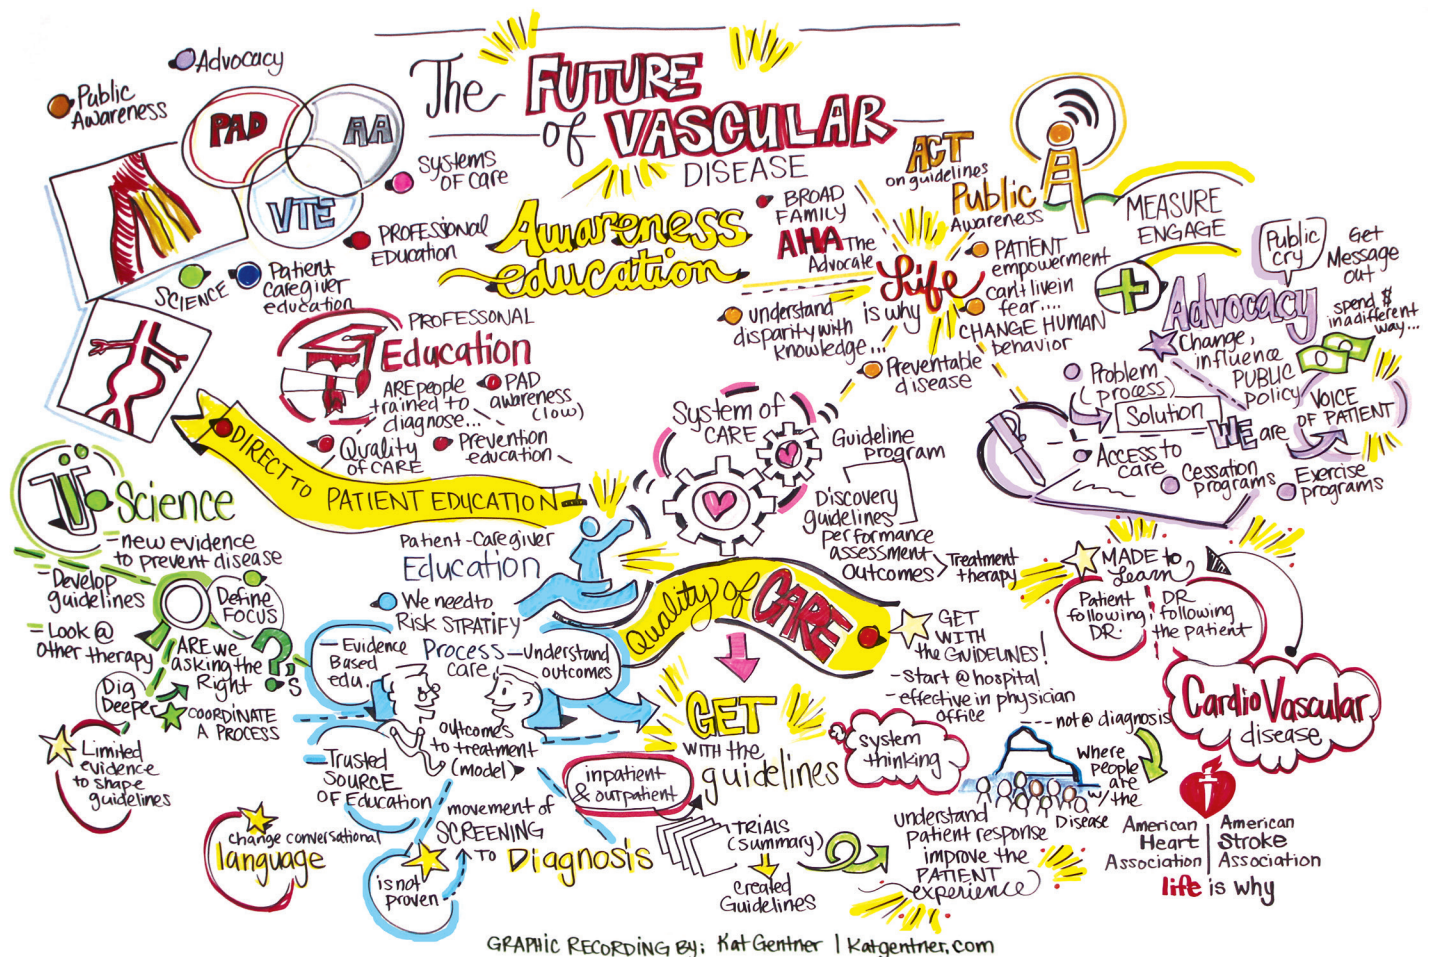 The FUTURE
of VASCULAR
DISEASE
Advocacy
Public
Awareness
PAD
AA
VTE
SYSTEMS
OF CARE
PROFESSIONAL
EDUCATION
SCIENCE
Patient
Caregiver
education
Awareness
education
BROAD
FAMILY
AHA The
Advocate
Life
is why
understand
disparity with
knowledge...
Preventable
disease
ACT
on guidelines
Public
Awareness
PATIENT
empowerment
can't live in
fear....
CHANGE HUMAN
behavior
MEASURE
ENGAGE
Public
cry
Get
Message
out
Advocacy
spend $
in a different
way...
Change,
influence
PUBLIC
POLICY
Problem
(process)
Solution
WE are
VOICE
OF PATIENT
Access to
care
Cessation
programs
Exercise
programs
PROFESSONAL
Education
ARE people
trained to
diagnose...
PAD
awareness
(low)
Quality
OF CARE
Prevention
education
DIRECT TO PATIENT EDUCATION
System of
CARE
Guideline
program
Discovery
guidelines
performance
assessment
Outcomes
Treatment
therapy
Science
-new evidence
to prevent disease
-Develop
guidelines
-Look @
other therapy
Define
FOCUS
ARE we
asking the
Right ?s
Dig
Deeper
COORDINATE
A PROCESS
Limited
evidence
to shape
guidelines
Patient-Caregiver
Education
We need to
Risk STRATIFY
-Evidence
Based
edu.
Process
care
-Understand
outcomes
outcomes
to treatment
(model)
-Trusted
SOURCE
OF Education
change conversational
language
movement of
SCREENING
TO Diagnosis
is not
proven
Quality of CARE
GET
WITH the
guidelines
inpatient
& outpatient
TRIALS
(summary)
Created
Guidelines
GET
WITH
the GUIDELINES!
-Start @ hospital
-effective in physician
office
---not @ diagnosis
system
thinking
where
people
are
w/ the
Disease
understand
patient response
improve the
PATIENT
experience
MADE to
Learn
Patient
following
DR.
DR
following
the patient
CardioVascular
disease
American
Heart
Association
American
Stroke
Association
life is why
GRAPHIC RECORDING BY: Kat Gentner | Katgentner.com